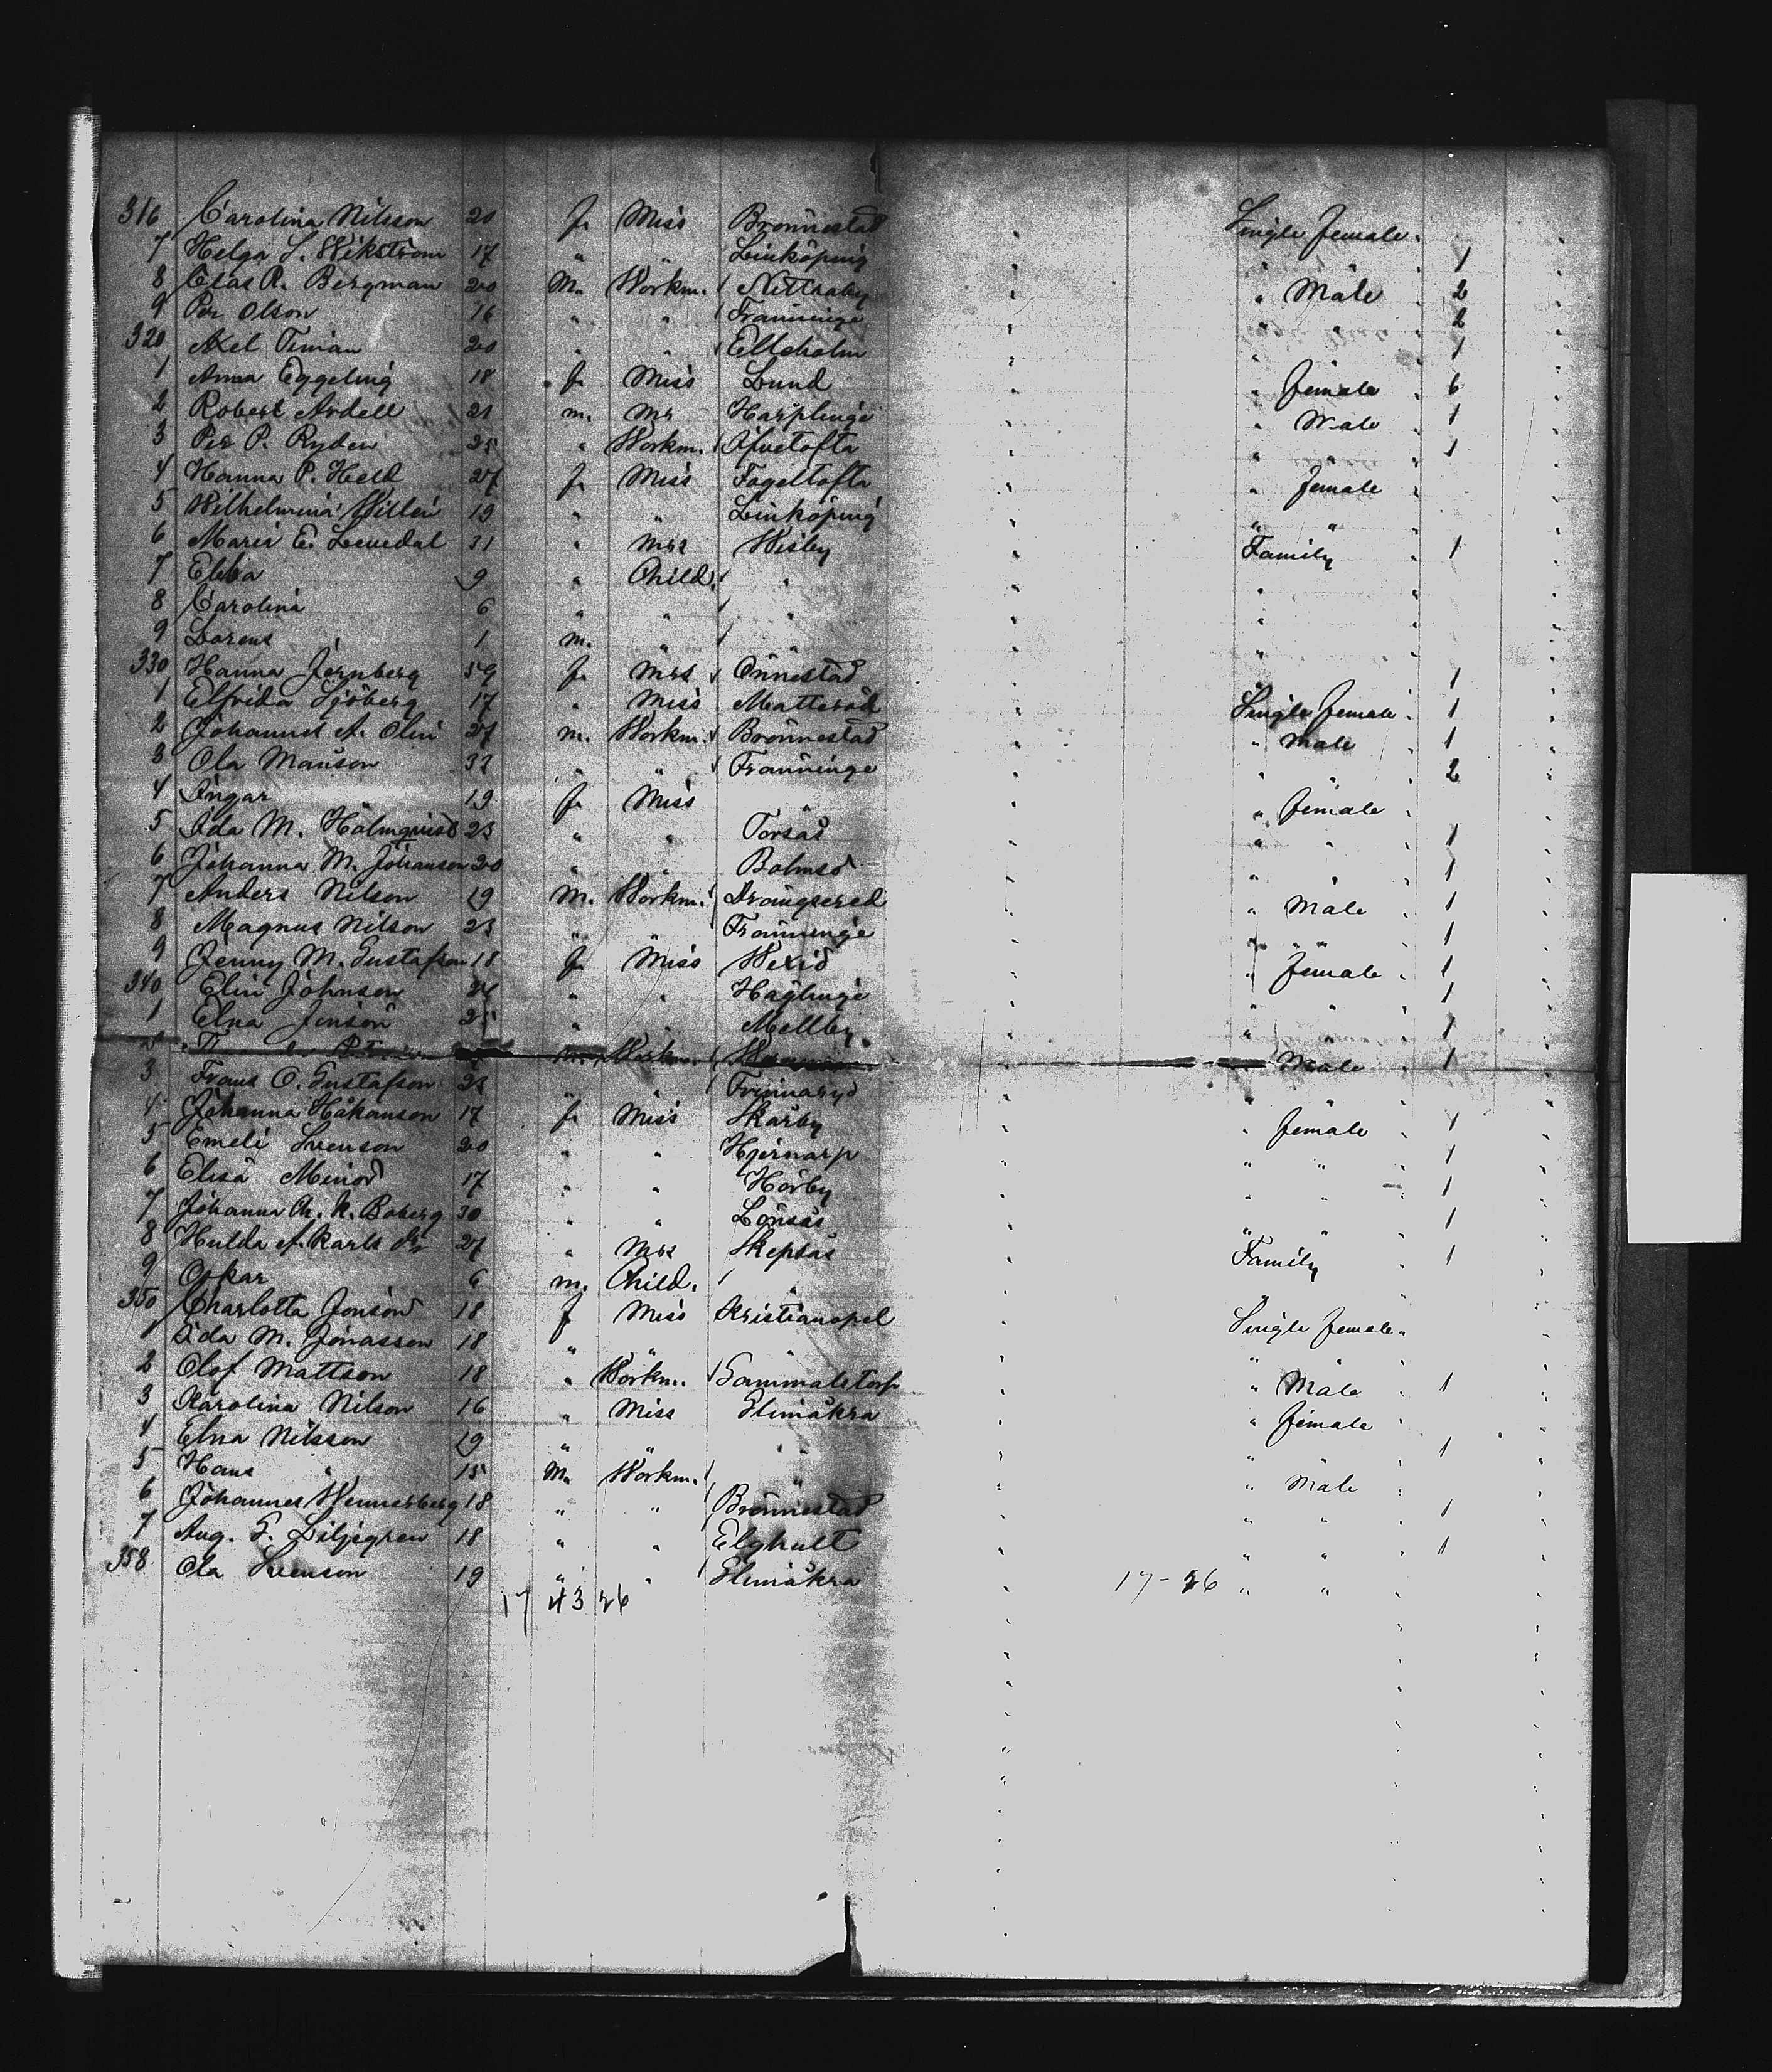 316 Carolina Nilsson 20 f. Miss Brönnestad Single Female
7 Helga S. Wikström 17 " " Linköping " " 1
8 Clas R. Bergman 20 M. Workm. Nettraby " Male 2
9 Per Olson 16 " " Tranninge " " 2
320 Axel Timan 20 " " Elleholm " " 1
1 Anna Eggeling 18 f. Miss Lund " Female 6
2 Robert Ardell 21 m. Mr Harplinge " Male 1
3 Per P. Ryden 25 " Workm. Åfvetofta " " 1
4 Hanna P. Held 27 f. Miss Fogeltofta " Female
5 Wilhelmina Willen 19 " " Linköping " "
6 Maria E. Levedal 31 " Mrs Wisby Family 1
7 Ebba 9 " Child " "
8 Carolina 6 " " " "
9 Lorens 1 m. " " "
330 Hanna Jernberg 59 f. Mrs Önnestad " 1
1 Elfrida Sjöberg 17 " Miss Matteröd Single Female 1
2 Johannes A. Olin 27 m. Workm. Brönnestad " Male 1
3 Ola Manson 32 " " Tranninge " " 2
4 Ingar 19 f. Miss " " Female
5 Ida M. Holmquist 23 " " Torsås " " 1
6 Johanna M. Johanson 20 " " Bolmsö " " 1
7 Anders Nilson 19 M. Workm. Drängsered " Male 1
8 Magnus Nilson 23 " " Tranninge " " 1
9 Jenny M. Gustafson 18 f. Miss Wexiö " Female 1
340 Elin Johnson " " Häglinge " " 1
1 Elna Jönson 25 " " Mellby " " 1
2 Workm. Male 1
3 Frans O. Gustafson 23 " " Frinnaryd " "
4 Johanna Håkanson 17 f. Miss Skårby " Female 1
5 Emeli Svenson 20 " " Hjernarp " " 1
6 Elisa Minör 17 " " Hörby " " 1
7 Johanna Ch. K. Boberg 30 " " Lönsås " " 1
8 Hulda A. Karls dr 27 " Mrs Skepsås Family 1
9 Oskar 6 m. Child. " "
350 Charlotta Jonson 18 f Miss Kristianopel Single Female
1 Ida M. Jonasson 18 " " " " "
2 Olof Mattson 18 " Workm. Gammalstorp " Male 1
3 Karolina Nilson 16 " Miss Glimåkra " Female
4 Elna Nilsson 19 " " " " " 1
5 Hans " 15 M. Workm. " " Male
6 Johannes Wennerberg 18 " " Brönnestad " " 1
7 Aug. G. Liljegren 18 " " Elghult " " 1
358 Ola Svenson 19 " " Glimåkra 17-26 " "
17 43 26